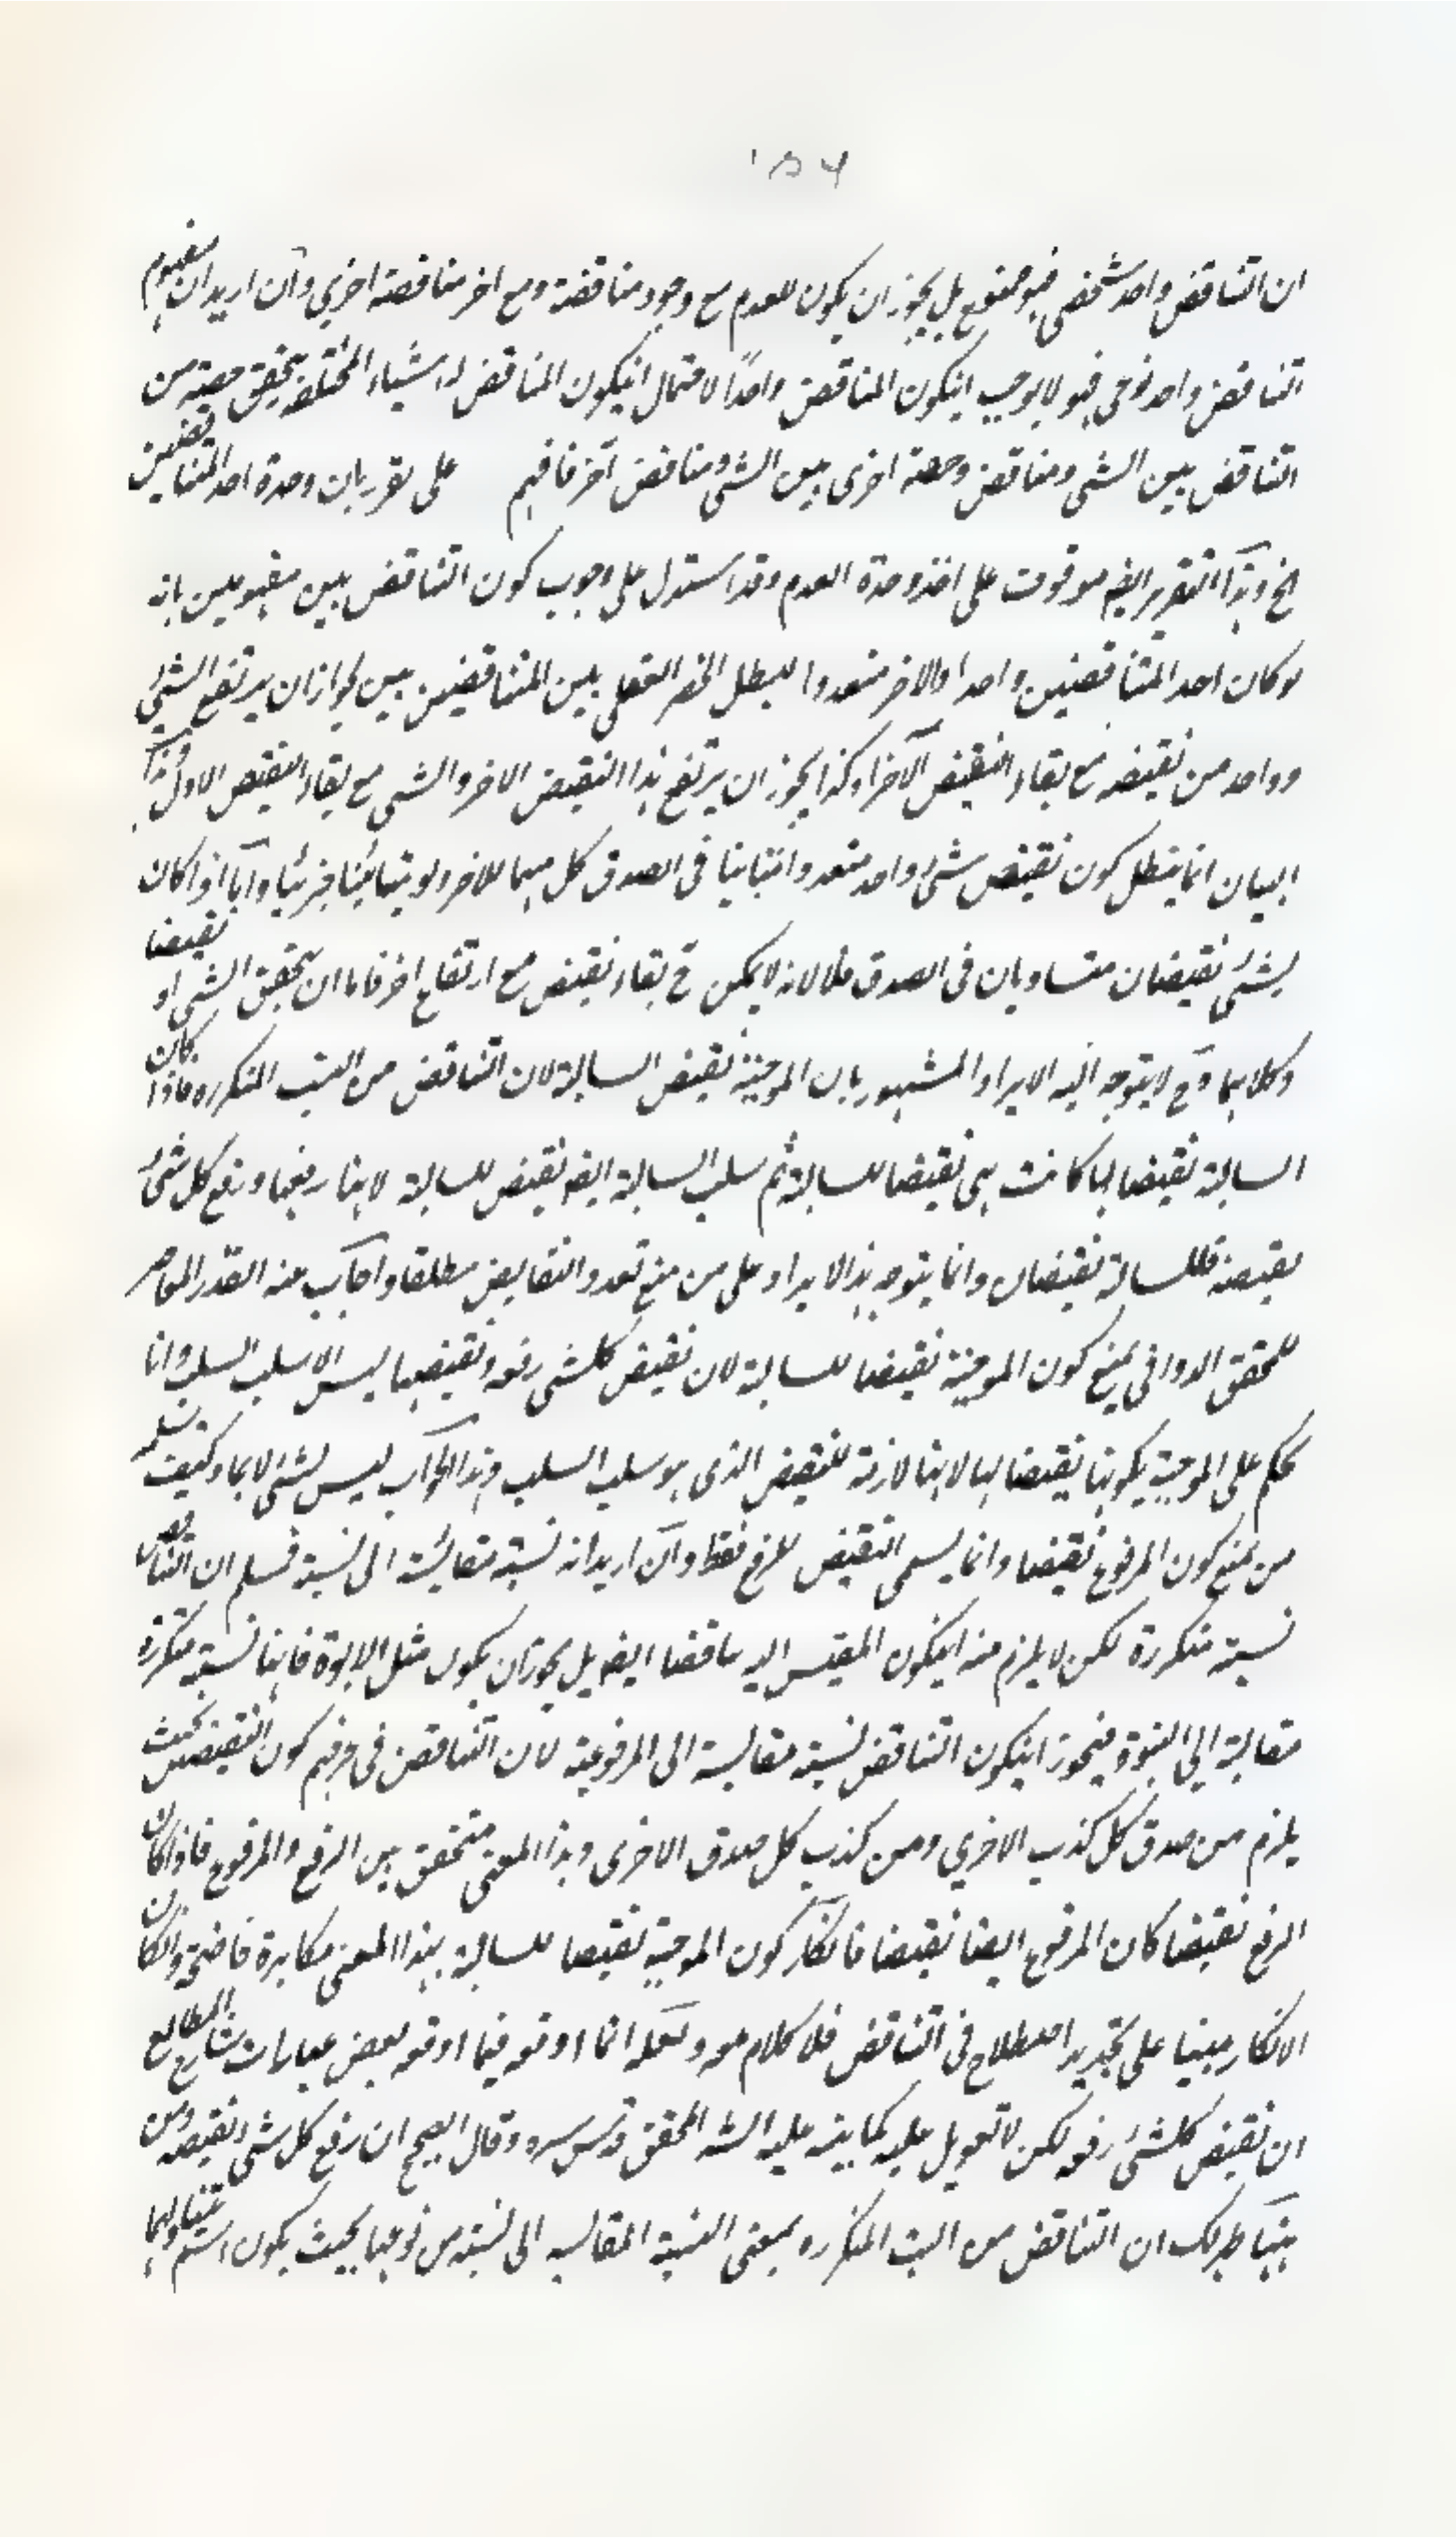 ١٥٦
ان التناقض واحد شخصي فهو ممنوع بل يجوز ان يكون للعدم مع وجود مناقضة ومع اخر مناقضة اخرى وان اريد ان مفهوم
التناقض واحد نوعي فهو لا يوجب ان يكون المناقض واحدًا لاحتمال ان يكون المناقض له اشياء المختلفة بتحقق حصة من
التناقض بين الشي ومناقض وحصة اخرى بين الشي ومناقض آخر فافهم على تقريران وحدة احد المتناقضين
الخ وهذا التقرير ايضه موقوف على اخذ وحدة العدم وقد استدل على وجوب كون التناقض بين مفهومين بانه
لو كان احد المتناقضين واحدا والاخر متعددا لبطل الحصر العقلي بين المتناقضين بين لجواز ان يرتفع الشيء
وواحد من نقيضه مع بقاء النقيض الآخر وكذا يجوز ان يرتفع هذا النقيض الاخر والشي مع بقاء النقيض الاول وهذا
البيان انما يبطل كون نقيض شيء واحد متعددا تباينا في الصدق كل منهما للاخر ولو تباينا جزئيا واما اذا كان
لشيء نقيضان متساويان في الصدق فلا لانه لا يمكن ح بقاء نقيض مع ارتفاع اخر فاما ان يتحقق الشي او نقيضا
وكلاهما وح لا يتوجه اليه الايراد المشهور بان الموجبة نقيض السالبة لان التناقض من النسب المتكررة فاذا كان
السالبة نقيضا لها كانت هي نقيضا للسالبة ثم سلب السالبة ايضه نقيض للسالبة لانها رفعها ورفع كل شيء
نقيضه فللسالبة نقيضان وانما يتوجه هذا الايراد على من منع تعدد النقايض مطلقا واجاب عنه الصدر المعاصر
للمحقق الدواني بمنع كون الموجبة نقيضا للسالبة لان نقيض كلشي رفعه ونقيضها ليس الا سلب السلب وانما
يحكم على الموجبة بكونها نقيضا لها لانها لازمة للنقيض الذي هو سلب السلب وهذا الجواب ليس بشي لا بما وكيف
من يمنع كون المرفوع نقيضا وانما يسمى النقيض للرفع فقط وان اريد انه نسبة مقايسة الى نسبة فسلم ان التناقض
نسبة متكررة لكن لا يلزم منه ان يكون المقيس اليه مناقضا ايضه بل يجوز ان يكون مثل الابوة فانها نسبة متكررة
مقايسة الى البنوة فيجوز ان يكون التناقض نسبة مقايسة الى المرفوعية لان التناقض في عرفهم كون النقيضين بحيث
يلزم من صدق كل كذب الاخرى ومن كذب كل صدق الاخرى وهذا المعنى متحقق بين الرفع والمرفوع فاذا كان
الرفع نقيضا كان المرفوع ايضا نقيضا فانكار كون الموجبة نقيضا للسالبة بهذا المعنى مكابرة فاضحة وان كان
الانكار مبنيا على تجديد اصطلاح في التناقض فلا كلام معه ولعله انما اوقعه فيما اوقعه بعض عبارات شارح المطالع
ان نقيض كلشيء رفعه لكن لا تعويل عليه كما بينه عليه الشه المحقق قدس سره وقال الصحيح ان رفع كل شي نقيضه ومن
ههنا ظهر لك ان التناقض من النسب المتكررة بمعنى النسبة المقايسة الى نسبة من نوعها بحيث يكون اسم تتناولهما